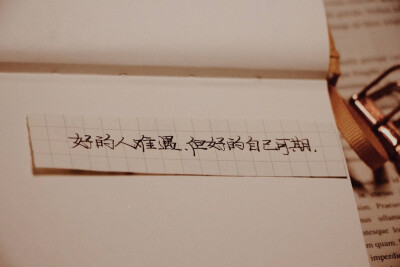 好的人难遇.但好的自己可期.
imperdie